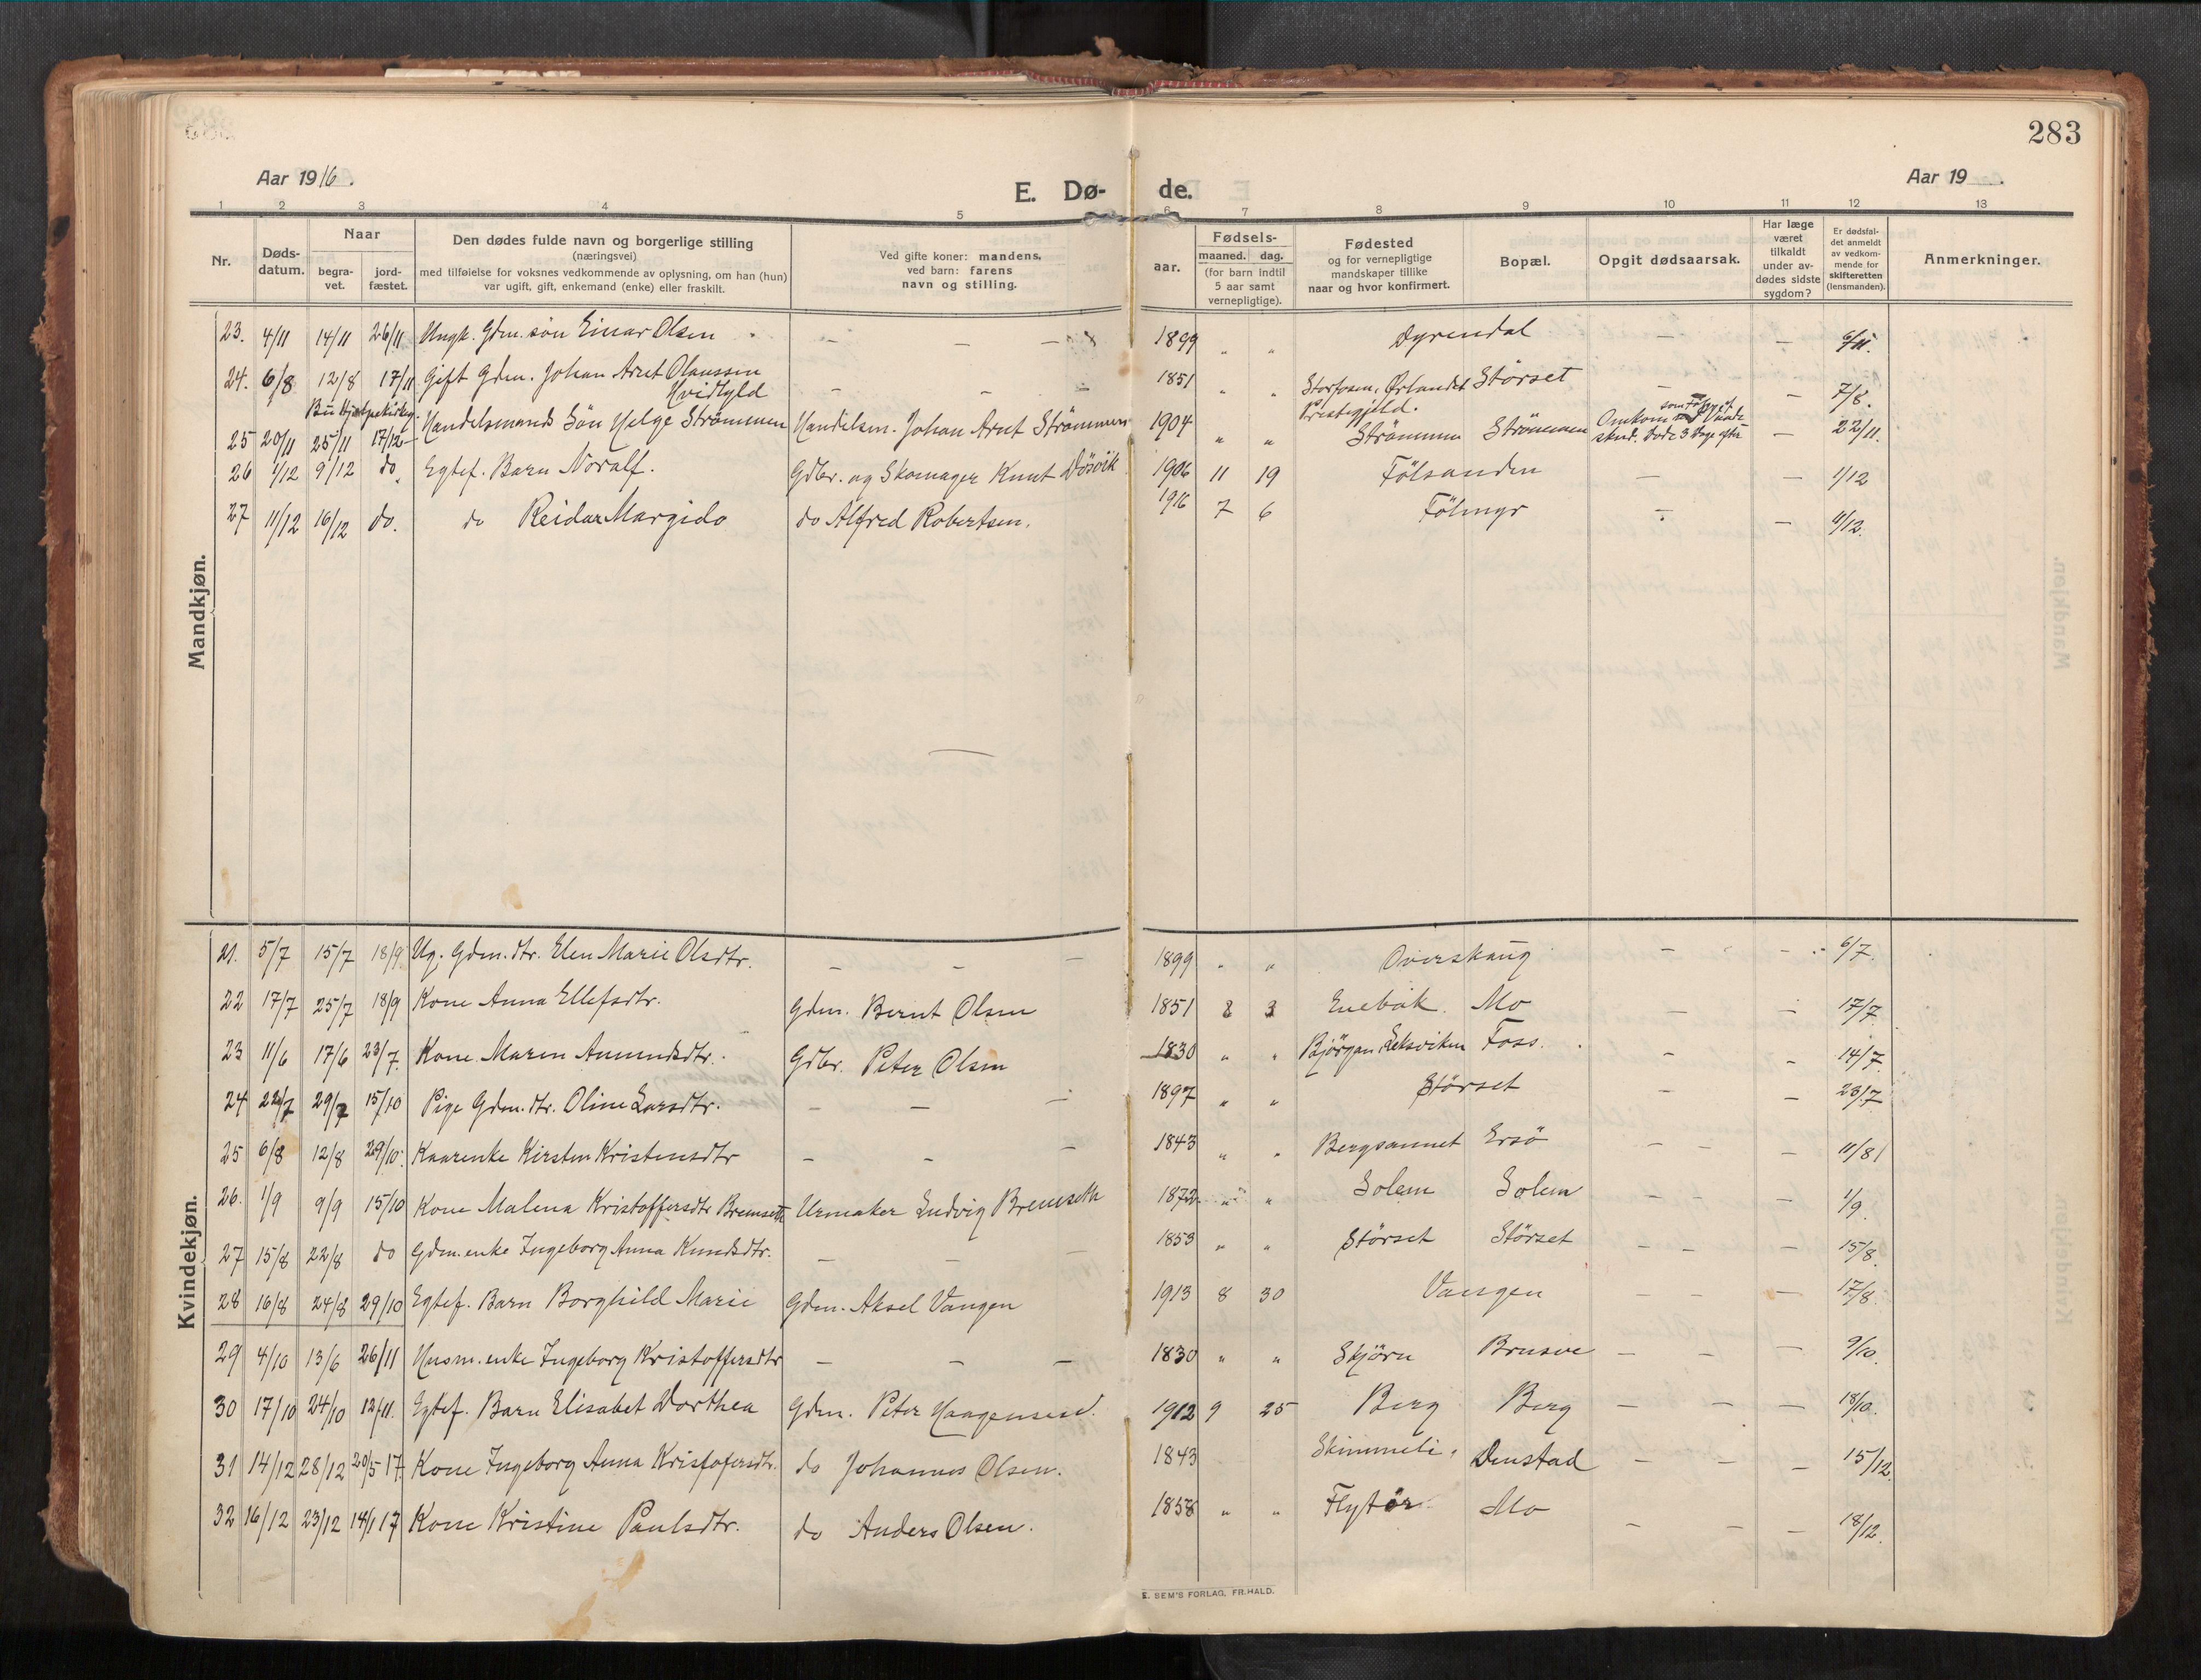 283
Aar 1916.
E. Dø- de.
Aar 19 .
1 2 3 4 5 6 7 8 9 10 11 12 13
Nr.
Døds-
datum.
Naar
begra-
vet.
jord-
fæstet.
Den dødes fulde navn og borgerlige stilling
(næringsvei)
med tilføielse for voksnes vedkommende av oplysning, om han (hun)
var ugift, gift, enkemand (enke) eller fraskilt.
Ved gifte koner: mandens,
ved barn: farens
navn og stilling.
aar.
Fødsels-
maaned. dag.
(for barn indtil
5 aar samt
vernepligtige).
Fødested
og for vernepligtige
mandskaper tillike
naar og hvor konfirmert.
Bopæl.
Opgit dødsaarsak.
Har læge
været
tilkaldt
under av-
dødes sidste
sygdom?
Er dødsfal-
det anmeldt
av vedkom-
mende for
skifteretten
(lensmanden).
Anmerkninger.
Mandkjøn.
23. 4/11 14/11 26/11 Ungk. Gdm. søn Einar Olsen - - - 1899 " " Dyrendal - - 6/11.
24. 6/8 12/8 17/11 Gift Gdm. Johan Arnt Olaussen - - - 1851 " " Storfosen, Ørlandet Störset - - 7/8.
Hvidtyld
Prestegjeld.
25 20/11 25/11 17/12 Handelsmands Sön Helge Strömmen Handelsm. Johan Arnt Strömmen 1904 " " Strömmen Strömmen Omkom som Følge af Vaade - 22/11.
skud. Døde 3 Dage efter
26 1/12 9/12 do. Egtef. Barn Noralf. Gdbr. og Skomager Knut Dösvik 1906 11 19 Fölsanden - - 1/12
27 11/12 16/12 do. do Reidar Margido do Alfred Robertsen. 1916 7 6 Fölmyr - - 11/12.
Kvindekjøn.
21. 5/7 15/7 18/9 Ug. Gdm. dtr. Elen Marie Olsdtr. - - - 1899 " " Overskaug - - 6/7.
22 17/7 25/7 18/9 Kone Anna Ellefsdtr. Gdm. Bernt Olsen 1851 8 3 Enebak. Mo - - 17/7.
23 11/6 17/6 23/7. Kone Maren Amundsdtr. Gdbr. Peter Olsen 1830 " " Björgan, Leksviken Foss. - - 14/7
24 22/7 29/7 15/10 Pige Gdm. dtr. Oline Larsdtr. - - - 1897 " " Störset - - 23/7
25 6/8 12/8 29/10. Kaarenke Kirsten Kristensdtr - - - 1843 " " Bergsannet Ersö - - - 11/8
26. 1/9 9/9 15/10 Kone Malena Kristoffersdtr Bremseth Urmaker Ludvig Bremseth 1872 " " Solem Solem - - - 1/9.
27 15/8 22/8 do Gdm. enke Ingeborg Anna Knudsdtr. - - - 1853 " " Störset Störset - - - 15/8.
28 16/8 24/8 29/10 Egtef. Barn Borghild Marie Gdm. Aksel Vangen 1913 8 30 Vangen - - - 17/8.
29 4/10 13/6 26/11 Husm. enke Ingeborg Kristoffersdtr - - - 1830 " " Skjörn Brusve - - - 9/10.
30 17/10 24/10 12/11. Egtef. Barn Elisabet Dorthea Gdm. Peter Haagensen. 1912 9 25 Berg Berg - - - 18/10.
31 14/12 28/12 20/5 17. Kone Ingeborg Anna Kristofersdtr. do Johannes Olsen. 1843 Skimmeli Denstad - - - 15/12.
32 16/12 23/12 14/1 17 Kone Kristine Paulsdtr. do Anders Olsen. 1858 " " Flytör Mo - - - 18/12.
E. SEM'S FORLAG, FR.HALD.